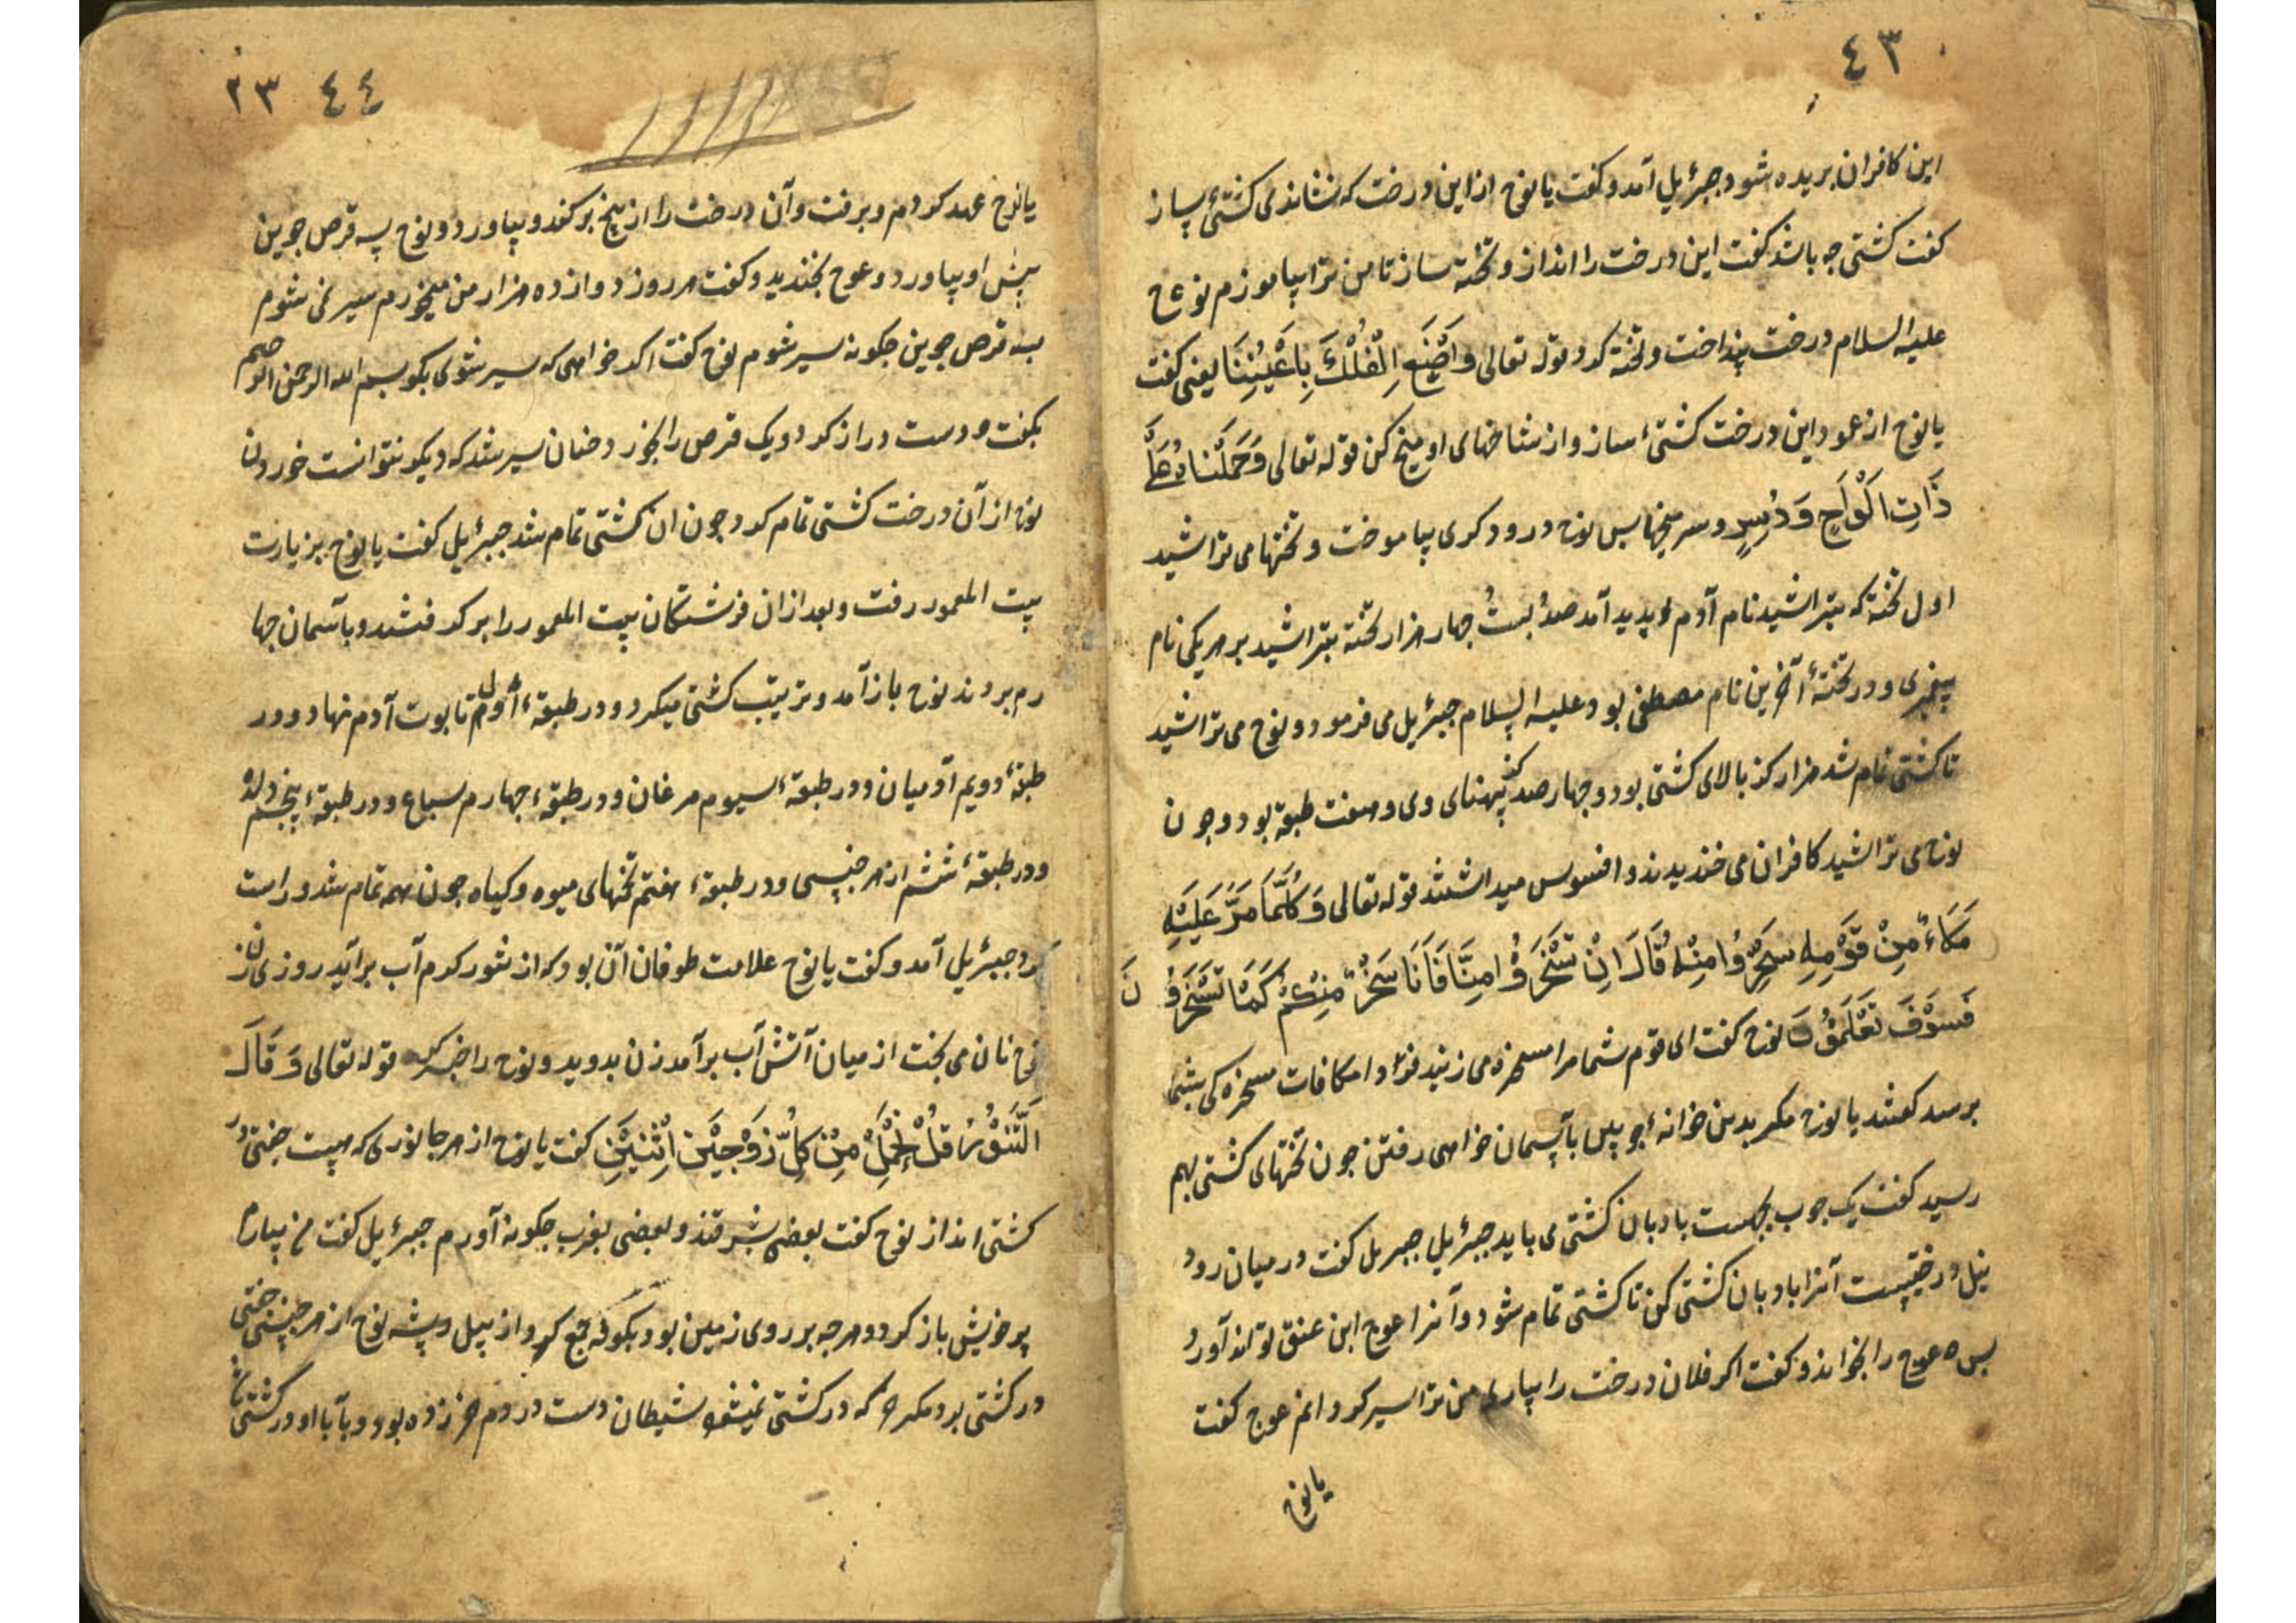 ٤٣
این کافران بریده شود جبرئیل آمد و کفت یا نوح ازاین درخت که نشاندی کشتئ بساز
کفت کشتی جه باشد کفت این درخت را انداز و تخته ساز تا من ترا بیاموزم نوح
علیه السلام درخت بینداخت و تخته کرد قوله تعالی وَاصْنَعِ الْفُلْكَ بِاَعْیُنِنَا یعنی کفت
یا نوح از عمود این درخت کشتئ ساز و از شاخهای او میخ کن قوله تعالی وَحَمَلْنَاهُ عَلَی
ذَاتِ اَلْوَاحٍ وَ دُسُرٍ و سر میخها بس نوح درود کری بیاموخت و تختها می تراشید
اول تخته که بتراشید نام آدم بدید آمد صد بیست جهار هزار تخته بتراشید بر هریکی نام
بیغمبری و در تختهٔ آخرین نام مصطفی بود علیه السلام جبرئیل می فرمود و نوح می تراشید
تا کشتی تمام شد هزار کز بالای کشتی بود و جهار صد کز بهنای وی و هفت طبقه بود و جون
نوح می تراشید کافران می خندیدند و افسوس میداشتند قوله تعالی وَکُلَّمَا مَرَّ عَلَیْهِ
مَلَاءٌ مِنْ قَوْمِهِ سَخِرُوا مِنْهُ قَالَ اِنْ تَسْخَرُوا مِنَّا فَاِنَّا نَسْخَرُ مِنْکُمْ کَمَا تَسْخَرُونَ
فَسَوْفَ تَعْلَمُونَ نوح کفت ای قوم شما مرا مسخره می زنید فردا مکافات مسخره کی بشما
برسد کفتند یا نوح مکر بدین خوانهٔ جوبین بآسمان خواهی رفتن جون تختهای کشتی بهم
رسید کفت یک جوب بجهت بادبان کشتی می باید جبرئیل جبریل کفت در میان رود
نیل درختیست آنرا بادبان کشتی کن تا کشتی تمام شود و آنرا عوج ابن عنق تواند آورد
بس عوج را بخواند و کفت اکر فلان درخت را بیاری من ترا سیر کردانم عوج کفت
یا نوح
٤٤ ٢٣
یا نوح عهد کردم و برفت و آن درخت را از بیخ برکند و بیاورد و نوح سه قرص جوین
بیش او بیاورد و عوج بخندید و کفت هر روز دوازده هزار من میخورم سیر نمی شوم
بسه قرص جوین جکونه سیر شوم نوح کفت اکر خواهی که سیر شوی بکو بسم الله الرحمن الرحیم
بکفت و دست دراز کرد و یک قرص را بخورد جنان سیر شد که دیکر نتوانست خوردن
نوح از آن درخت کشتی تمام کرد جون ان کشتی تمام شد جبرئیل کفت یا نوح بزیارت
بیت المعمور رفت و بعد ازان فرشتکان بیت المعمور را برکرفتند و بآسمان جها
رم بردند نوح باز آمد و ترتیب کشتی میکرد و در طبقهٔ اول تابوت آدم نهاد و در
طبقهٔ دویم آدمیان و در طبقهٔ سیوم مرغان و در طبقهٔ جهارم سباع و در طبقهٔ بنجم
و در طبقهٔ ششم از هر جنسی و در طبقهٔ هفتم تخمهای میوه و کیاه جون همه تمام شد و راست
کرد جبرئیل آمد و کفت یا نوح علامت طوفان آن بود که از تنور کرم آب برآید روزی زن
نوح نان می بخت از میان آتش آب برآمد زن بدوید و نوح را خبر کرد قوله تعالی وَ فَارَ
الَتَّنُّوْرُ قُلْنَا احْمِلْ مِنْ کُلٍّ زَوْجَیْنِ اثْنَیْنِ کفت یا نوح از هر جانوری که هست جفتی در
کشتی انداز نوح کفت بعضی بشرقند و بعضی بغرب جکونه آورم جبرئیل کفت من بیارم
بر خویش باز کرد و هرجه بر روی زمین بود بکوفه جمع کرد از بیل و بشه نوح از هر جنسی جفتی
در کشتی برد مکر خر که در کشتی نمیشد شیطان دست در دم خر زده بود و بآ با او در کشتی